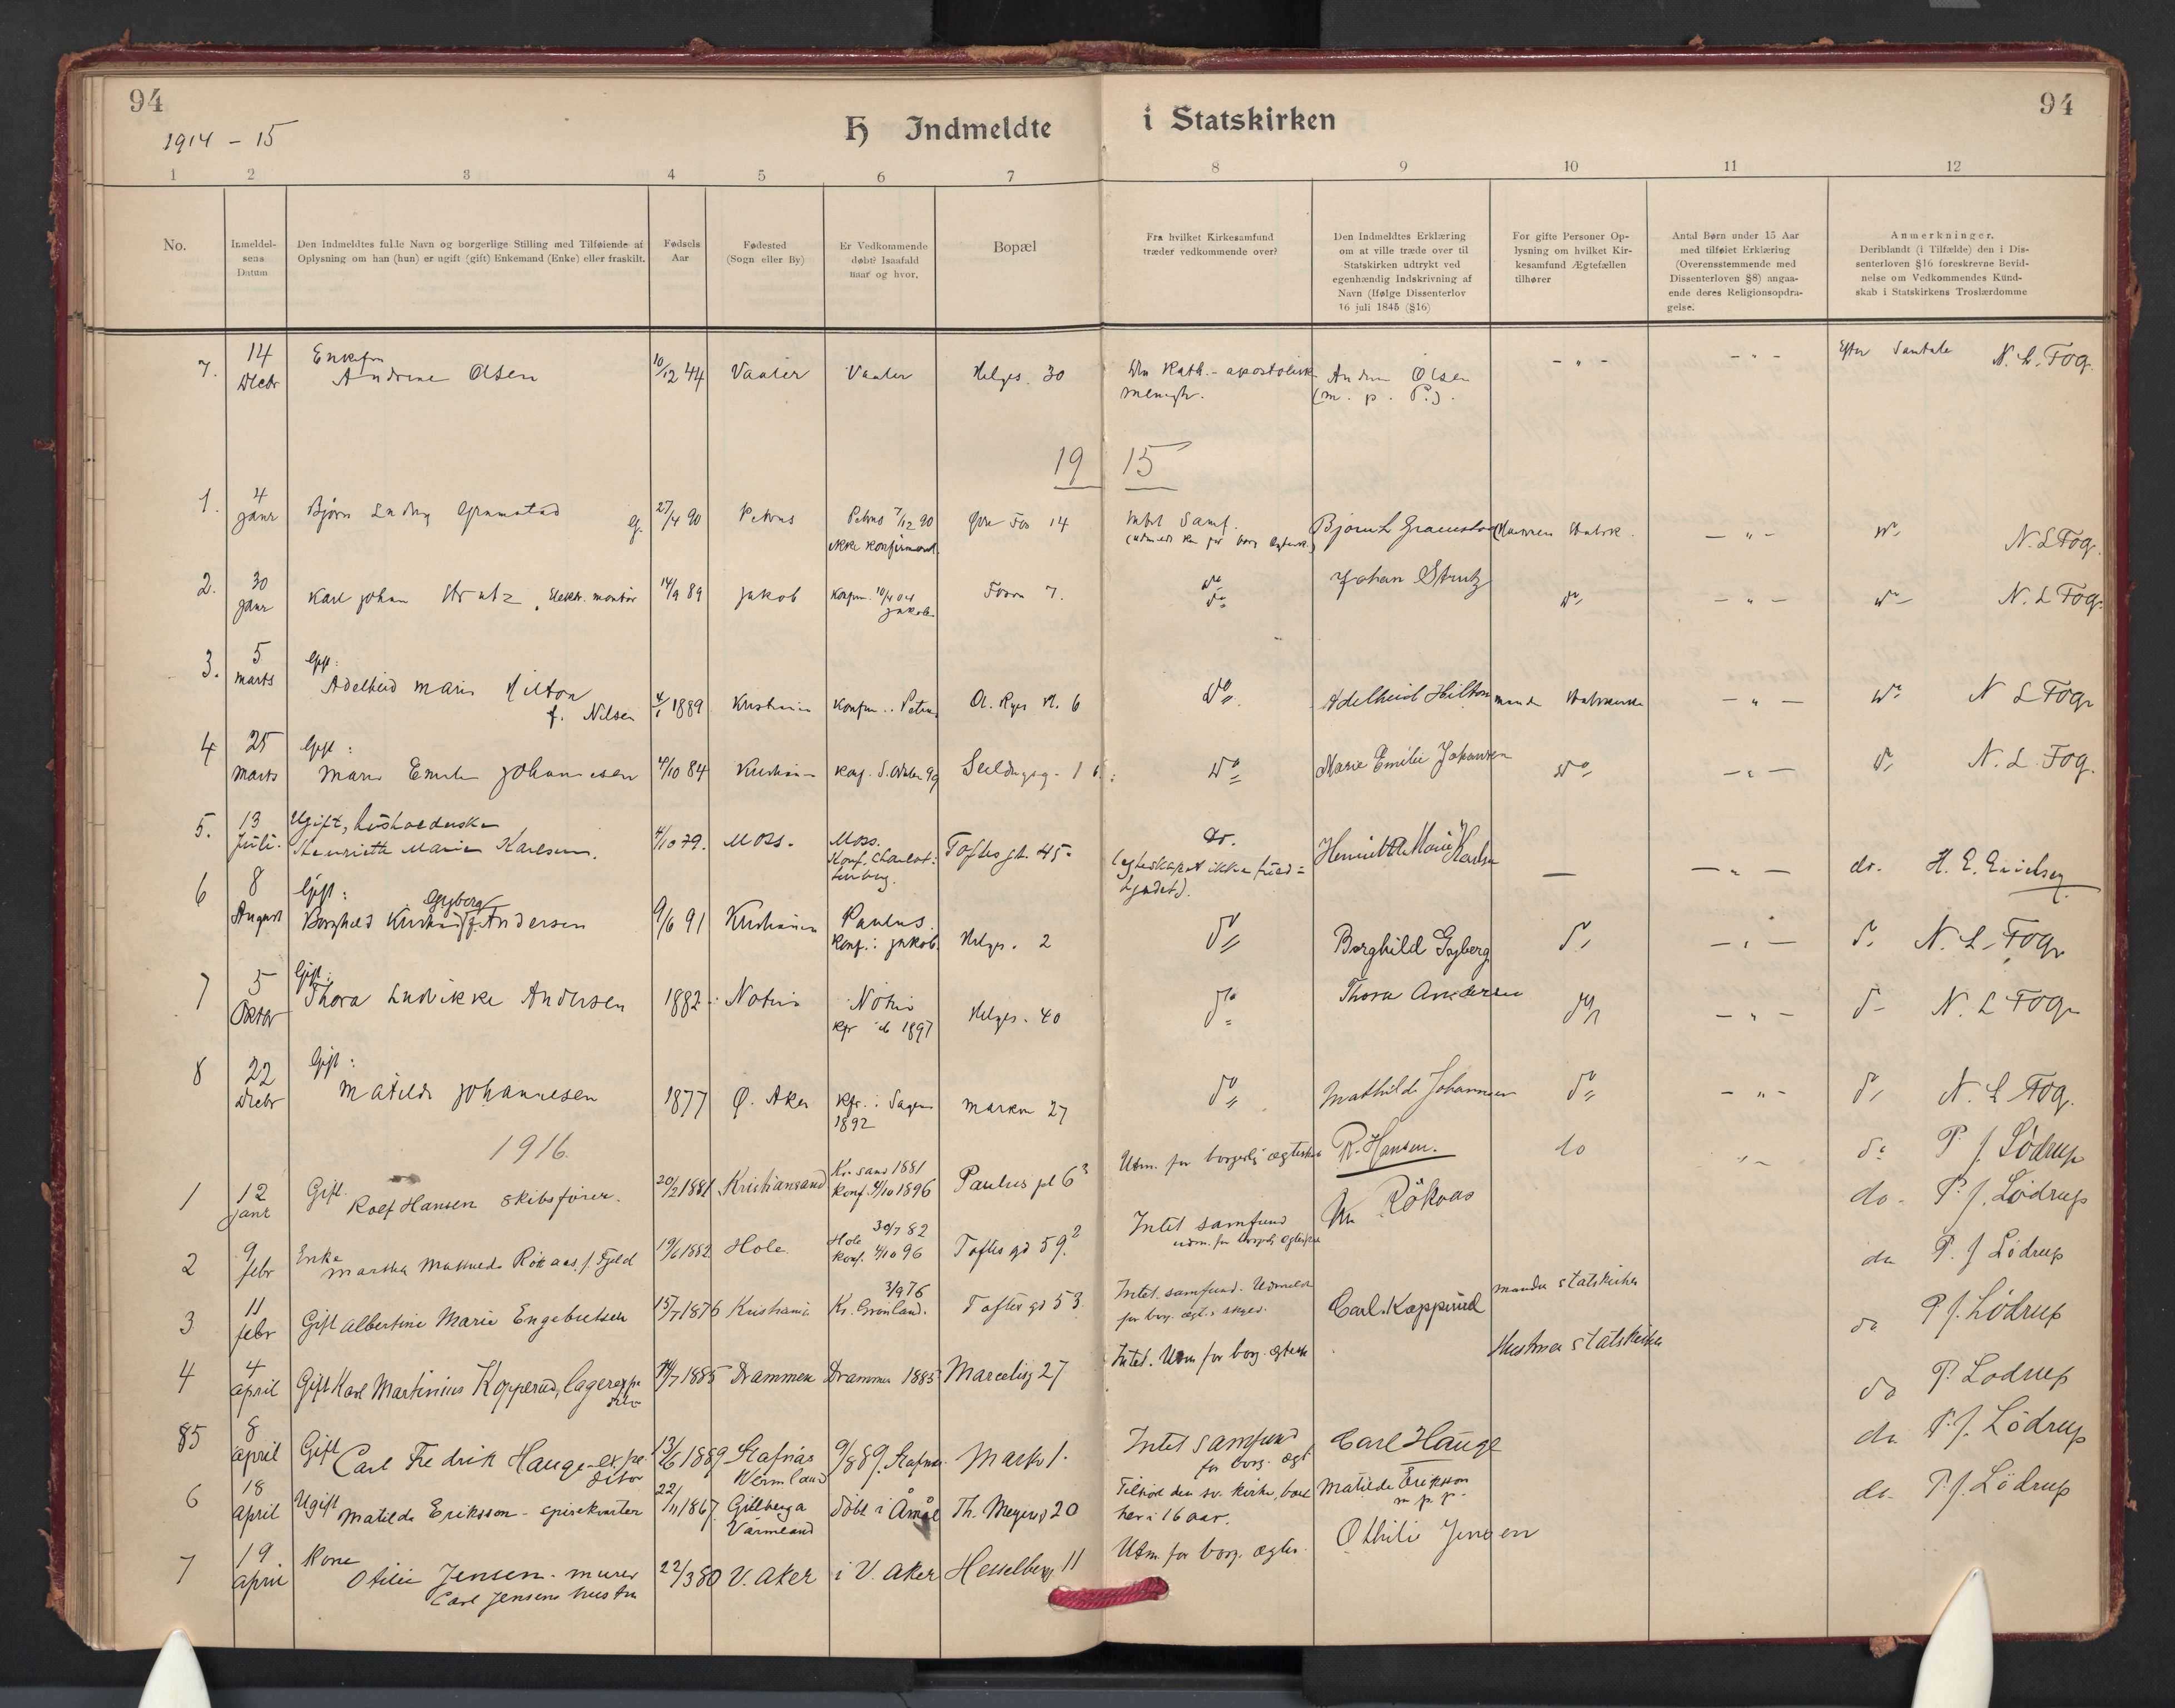 94
1914 - 15
H Indmeldte
i Statskirken
94
1 2 3 4 5 6 7 8 9 10 11 12
No.
Inmeldel-
sens
Datum
Den Indmeldtes fulde Navn og borgerlige Stilling med Tilføiende af
Oplysning om han (hun) er ugift (gift) Enkemand (Enke) eller fraskilt.
Fødsels
Aar
Fødested
(Sogn eller By)
Er Vedkommende
døbt? Isaafald
naar og hvor.
Bopæl
Fra hvilket Kirkesamfund
træder vedkommende over?
Den Indmeldtes Erklæring
om at ville træde over til
Statskirken udtrykt ved
egenhændig Indskrivning af
Navn (Ifølge Dissenterlov
16 juli 1845 (§16)
For gifte Personer Op-
lysning om hvilket Kir-
kesamfund Ægtefællen
tilhører
Antal Børn under 15 Aar
med tilføiet Erklæring
(Overensstemmende med
Dissenterloven §8) angaa-
ende deres Religionsopdra-
gelse.
Anmerkninger.
Deriblandt (i Tilfælde) den i Dis-
senterloven §16 foreskrevne Bevid-
nelse om Vedkommendes Kund-
skab i Statskirkens Troslærdomme
7. 14 Decbr Enkefru
Andrine Olsen 10/12 44 Vaaler Vaaler Helges. 30 Den Kath.-apostolisk Olsen - " - - " - Efter Samtale N. L. Fog.
menigh. (m. p. P.).
19 15
1. 4 janr Bjørn Ludvig Gramstad g. 27/4 90 Petrus Petrus 7/12 90 14 Intet Samf. Bjørn L Gramstad - " - N. L Fog.
ikke konfirmert
2. 30 janr Karl Johan Strutz, Elektr. montør 14/9 89 Jakob Konfirm. 10/4 04 7. do Johan Strutz do - " - do N. L Fog.
Jakob
3. 5 marts Gift:
Adelheid Marie Hilton
f. Nilsen 4/1 1889 Kristiania Konfirm. Petrus O. Ryes Pl. 6 do Adelheid Hilton - " - do N L Fog
4 25 Marts Gift:
Marie Emilie Johannesen 4/10 84 Kristiania 99 do Marie Emilie Johansen do - " - do N. L. Fog.
5. 13 Juli. Ugift, husholderske
Henriette Marie Karlsen. 4/10 79. Moss. Moss. Toftes gt. 45. do. Henriette Marie Karlsen — - " - do. H. E.
Konf. Charlot-
tenberg.
6 8 August Gift: Gyberg
Borghild Kristiane f. Andersen 9/6 91 Kristiania Paulus. Helges. 2 do Borghild Gyberg do - " - do N. L. Fog
Konf. i Jakob.
7 5 Oktbr Gift:
Thora Ludvikke Andersen 1882 Helges. 40 do Thora Andersen do - " - do N. L Fog
1897
8 22 Decbr Gift:
Matilde Johannesen 1877 Ø. Aker Kfr. i Sagene Markv 27 do Mathilde Johannesen do - " - do N. L Fog.
1892
1916.
1 12 janr Gift. Rolf Hansen skibsfører. 20/2 1881 Kristiansand Kr. sand 1881 Paulus pl 6³ Utm. for borgerlig ægtesk R. Hansen. do P J. Lödrup
Konf. 4/10 1896
2 9 febr Enke Martha Mathilde Rökaas, f. Fjeld 19/6 1882 Hole Hole 30/7 82 Toftes gd 59.² Intet samfund Rökaas do P. J. Lödrup
Konf. 4/10 96
3 11 febr Gift Albertine Marie Engebretsen 15/7 1876 Kristiania 3/9 76 Toftes gd 53 Intet samfund. Udmeldt mandes statskirken do P. J Lödrup
Kr. Grønland.
4 4 april Gift Karl Martinius Kopperud, lagerexpe
ditør 14/7 1885 Drammen Drammen 1885 Marcelisg 27 Intet. Utm for borg. ægtesk Carl. Kopperud Hustrues statskirken do P J. Lödrup
85 8 april Gift Carl Fredrik Hauge expe
ditør 13/6 1889 Stafnäs
Wermland 9/8 89. Stafnäs Markv 1. Intet samfund
for borg. ægt Carl Hauge do P. Lodrup
6 18 april Ugift Matilde Eriksson - spisekvarter 22/11 1867 Gillberga
Värmland Døbt i Åmål Th. Meyersg 20 Tilhört den sv. kirke, boet
her i 16 aar. Matilde Eriksson
m. p. p. do P. J. Lödrup
7 19. april Kone
Otilie Jensen - murer
Carl Jensens hustru 22/3 80 V. Aker i V. Aker Hesselbergg 11 Utm. for borg. ægtes. Othilie Jensen do P J. Lödrup